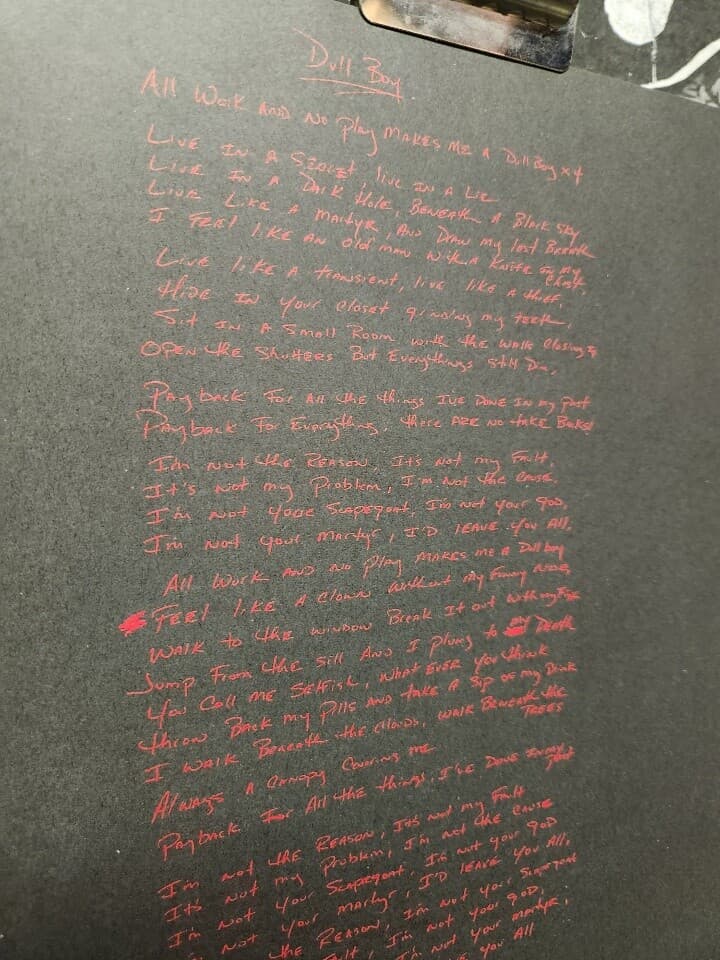 Dull Boy
All Work And No Play Makes Me A Dull Boy x4
Live In A Secret, live in A Lie
Live in A Dark Hole, Beneath A Black Sky
Live Like A Martyr, And Draw my last Breath
I Feel like An old man with A Knife in my chest.
Live like A transient, live like A thief,
Hide In Your Closet grinding my teeth,
Sit In A Small Room with the walls Closing In
Open the Shutters But Everythings Still Dim,
Payback For All the things I've Done In my past
Payback For Everything, there Are No take Backs!
I'm Not the Reason, Its Not my Fault,
It's Not my Problem, I'm Not the Cause,
I'm Not Your Scapegoat, I'm Not Your God,
I'm Not Your Martyr, I'D leave You All,
All Work And No Play Makes me A Dull boy
Feel like A Clown without my Funny Nose,
Walk to the window Break It out with my Fist
Jump From the Sill And I plung to my Death
You Call Me Selfish, What Ever you think
throw Back my Pills and take A Sip of my Drink
I Walk Beneath the Clouds, walk Beneath the Trees
Always A Canopy Covering me
Payback For All the things I've Done In my past
I'm Not the Reason, Its Not my Fault
It's Not my Problem, I'm Not the Cause
I'm Not Your Scapegoat, I'm Not Your God
Not Your Martyr, I'D leave You All,
the Reason, I'm Not Your Scapegoat
Fault, I'm Not Your God,
I'm Not Your Martyr,
You All